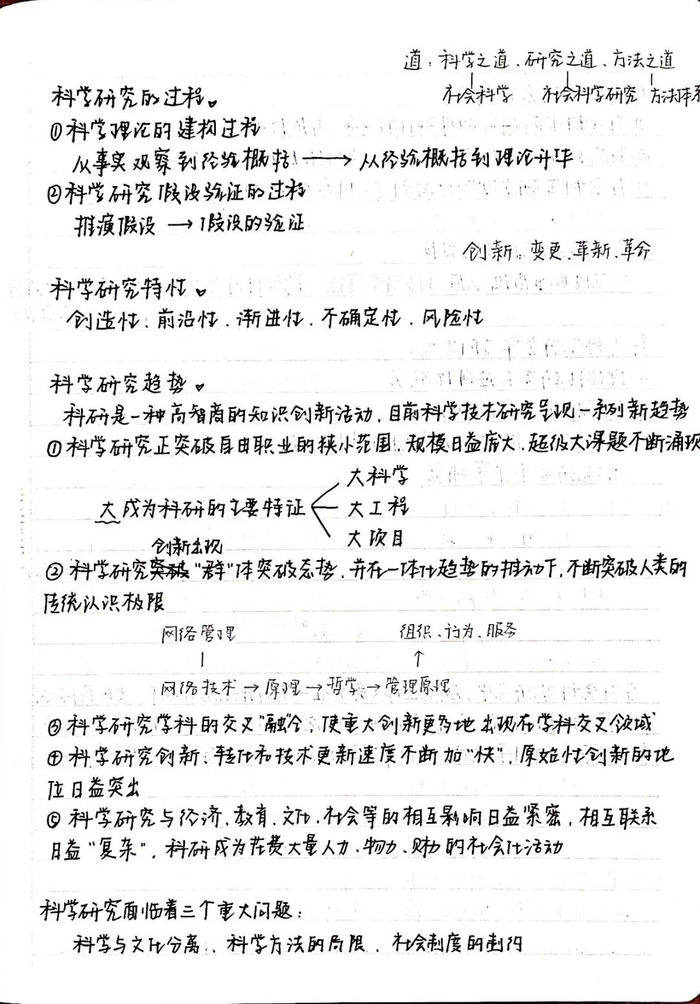 道：科学之道、研究之道、方法之道
社会科学 社会科学研究 方法体系
科学研究的过程。
①科学理论的建构过程
从事实观察到经验概括 → 从经验概括到理论升华
②科学研究假设验证的过程
推演假设 → 假设的验证
创新。变更、革新、革命
科学研究特性。
创造性、前沿性、渐进性、不确定性、风险性
科学研究趋势。
科研是一种高智商的知识创新活动，目前科学技术研究呈现一系列新趋势
①科学研究正突破自由职业的狭小范围，规模日益庞大，超级大课题不断涌现
大科学
大成为科研的主要特征 大工程
大项目
创新出现
②科学研究突破"群"体突破态势，并在一体化趋势的推动下，不断突破人类的
传统认识极限
网络管理 组织、行为、服务
网络技术 → 原理 → 哲学 → 管理原理
③科学研究学科的交叉"融合"，使重大创新更多地出现在学科交叉领域
④科学研究创新、转化和技术更新速度不断加"快"，原始性创新的地
位日益突出
⑤科学研究与经济、教育、文化、社会等的相互影响日益紧密，相互联系
日益"复杂"，科研成为花费大量人力、物力、财力的社会化活动
科学研究面临着三个重大问题：
科学与文化分离、科学方法的局限、社会制度的制约